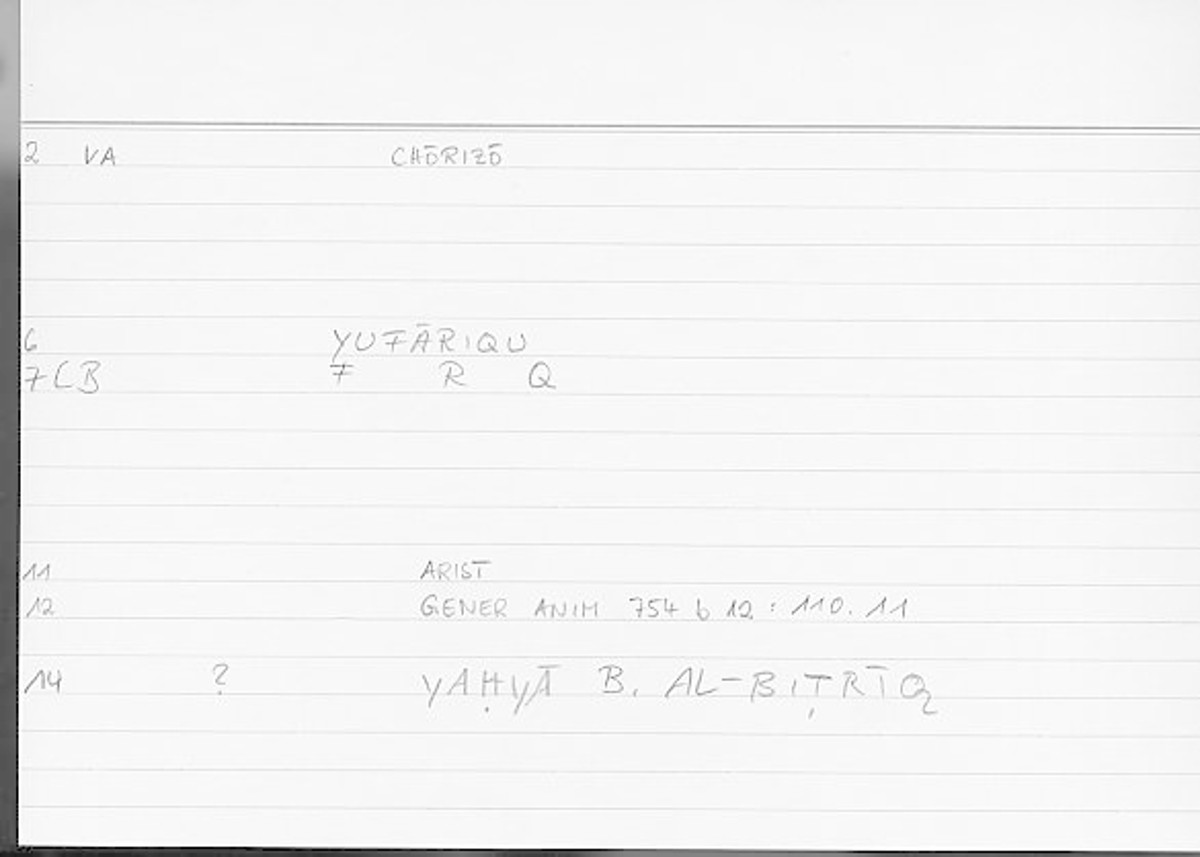 2 VA CHŌRIZŌ
6 YUFĀRIQU
7CB F R Q
11 ARIST
12 GENER ANIM 754 b 12 : 110. 11
14 ? YAḤYĀ B. AL-BIṬRĪQ